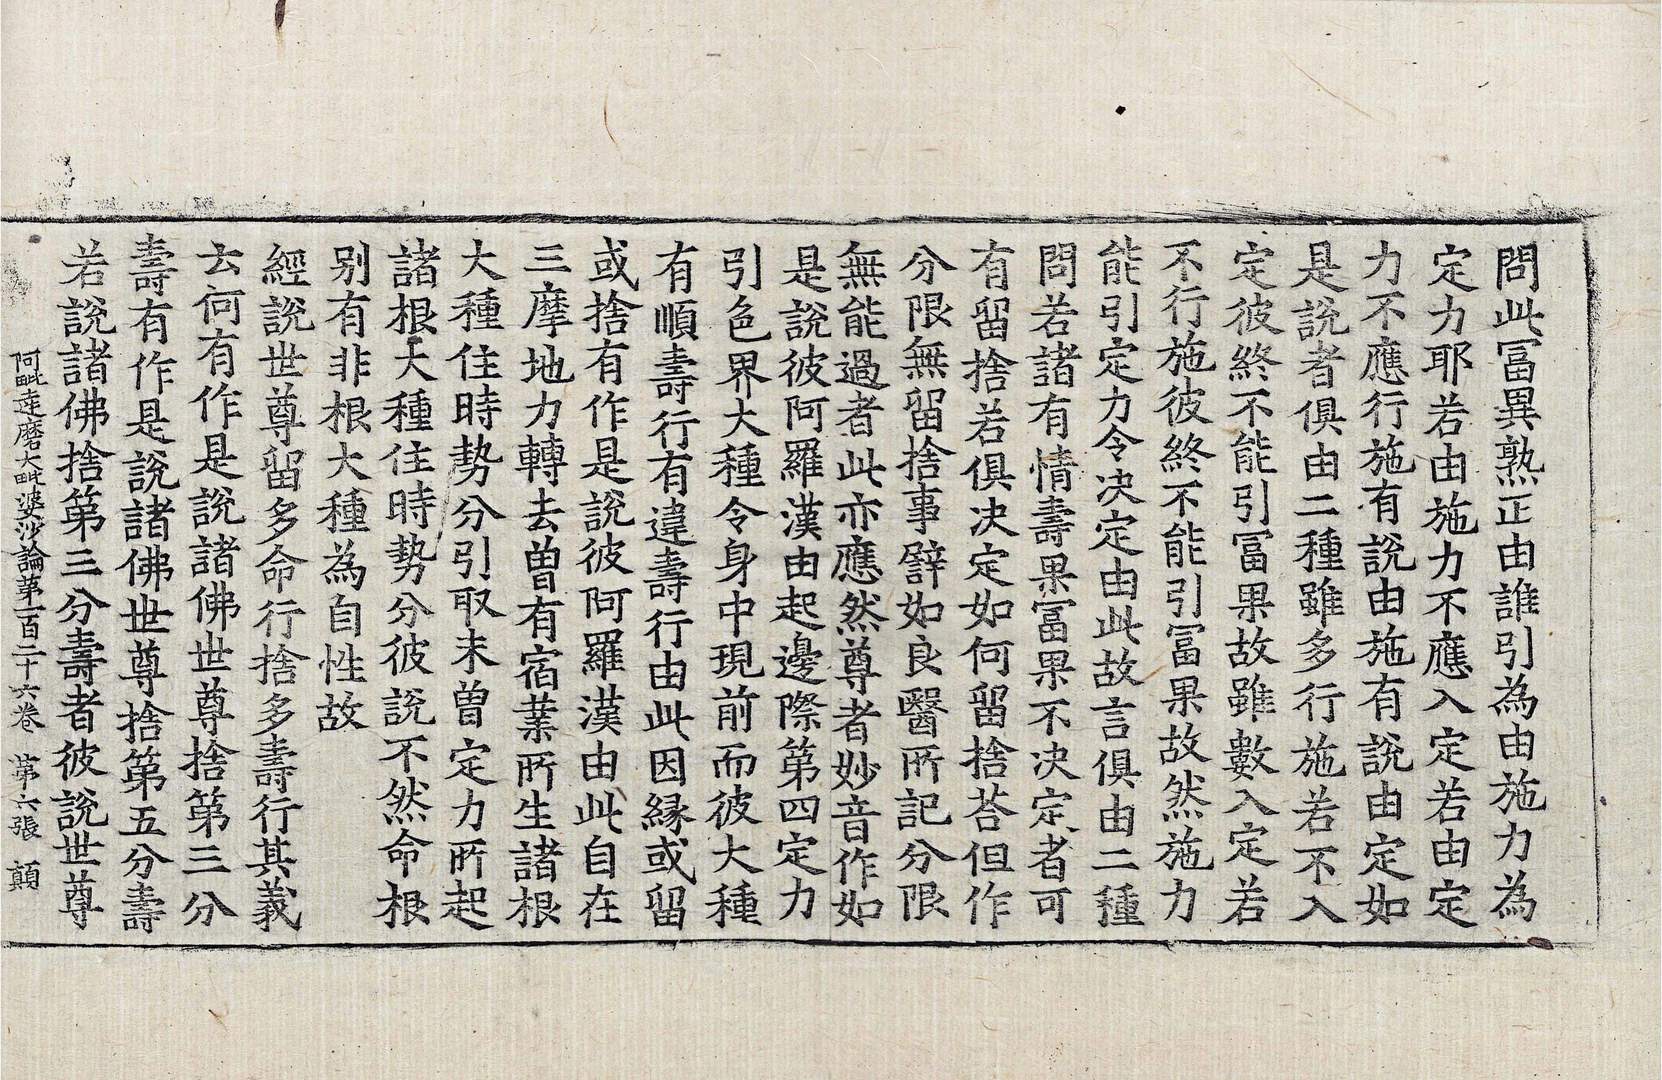 問此冨異熟正由誰引為由施力為
定力耶若由施力不應入定若由定
力不應行施有說由施有說由定如
是說者俱由二種雖多行施若不入
定彼終不能引冨果故雖數入定若
不行施彼終不能引冨果故然施力
能引定力令决定由此故言俱由二種
問若諸有情壽果冨果不决定者可
有留捨若俱决定如何留捨荅但作
分限無留捨事譬如良醫所記分限
無能過者此亦應然尊者妙音作如
是說彼阿羅漢由起邊際第四定力
引色界大種令身中現前而彼大種
有順壽行有違壽行由此因縁或留
或捨有作是說彼阿羅漢由此自在
三摩地力轉去曾有宿業所生諸根
大種住時勢分引取未曾定力所起
諸根大種住時勢分彼說不然命根
别有非根大種為自性故
經說世尊留多命行捨多壽行其義
云何有作是說諸佛世尊捨第三分
壽有作是說諸佛世尊捨第五分壽
若說諸佛捨第三分壽者彼說世尊
阿毗達磨大毗婆沙論第一百二十六卷 第六張 顛